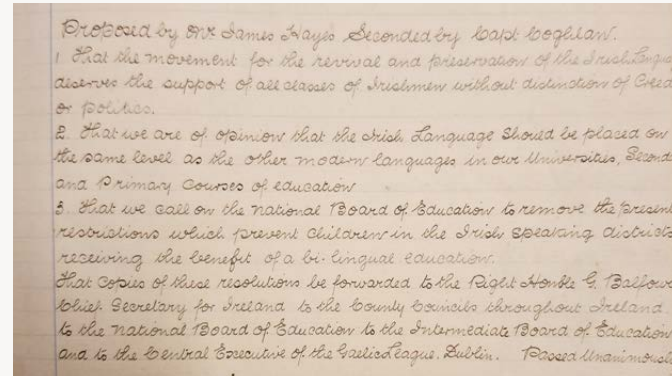 Proposed by Mr James Hayes Seconded by Capt Coghlan.
1 That the movement for the revival and preservation of the Irish Languag
deserves the support of all classes of Irishmen without distinction of Creed
or politics.
2. That we are of opinion that the Irish Language should be placed on
the same level as the other modern languages in our Universities, Second
and Primary Courses of education
3. That we call on the National Board of Education to remove the present
restrictions which prevent children in the Irish speaking districts
receiving the benefit of a bi-lingual education.
That copies of these resolutions be forwarded to the Right Honble G. Balfour
Chief Secretary for Ireland to the County Councils throughout Ireland
to the National Board of Education to the Intermediate Board of Education
and to the Central Executive of the Gaelic League. Dublin. Passed Unanimousl